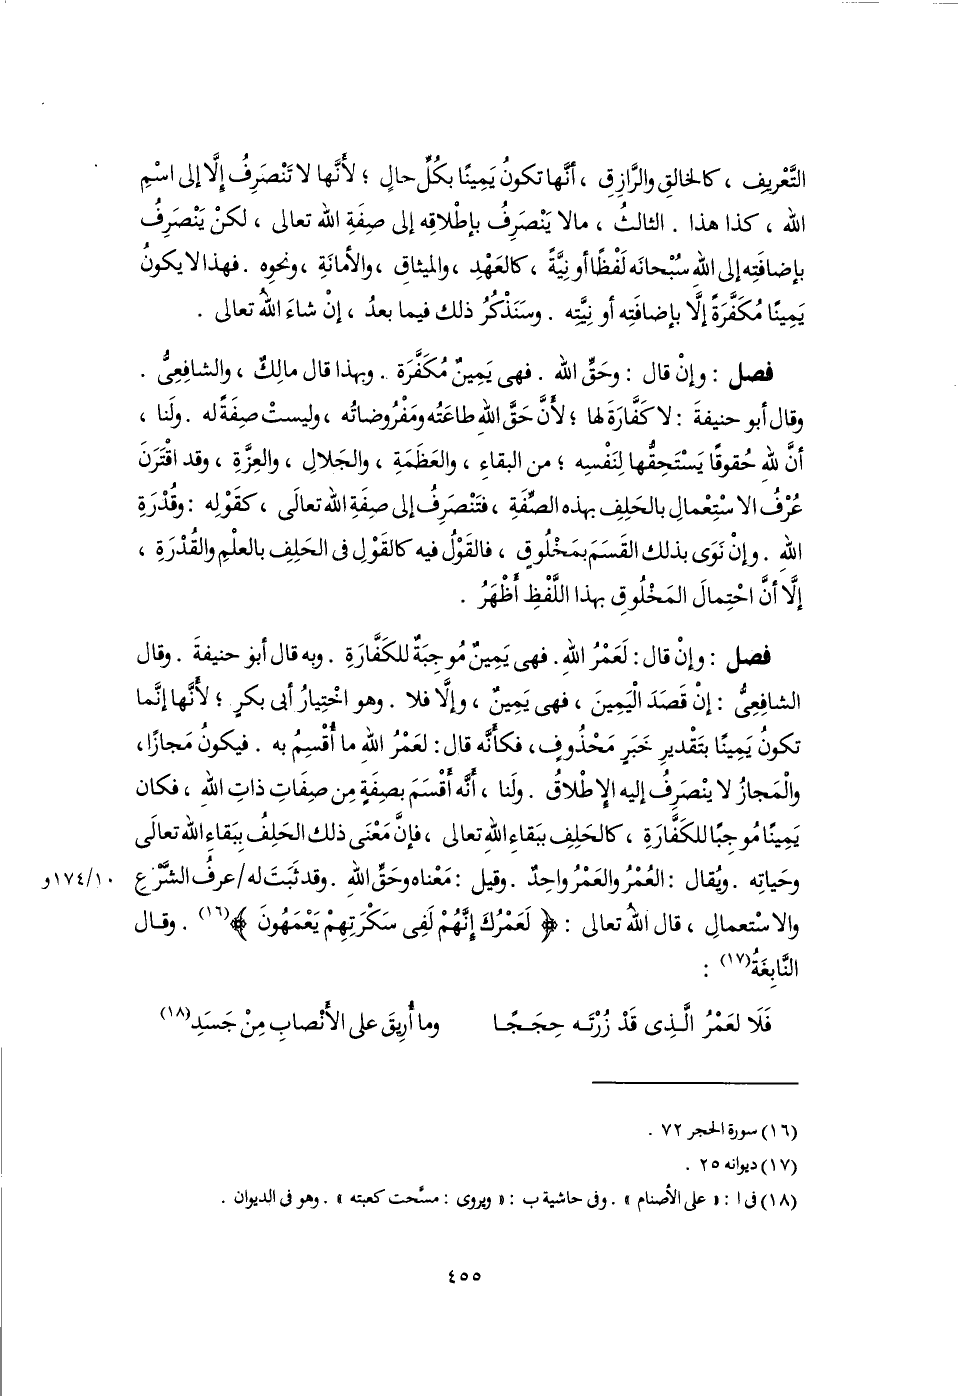 التَّعْرِيفِ ، كالخالِقِ والرَّازِقِ ، أنَّها تكونُ يَمِينًا بكُلِّ حالٍ ؛ لأَنَّها لا تَنْصَرِفُ إلَّا إلى اسْمِ
اللهِ ، كذا هذا . الثالثُ ، مالا يَنْصَرِفُ بإطْلاقِه إلى صِفَةِ اللهِ تعالى ، لكنْ يَنْصَرِفُ
بإضافَتِه إلى اللهِ سُبْحانَه لَفْظًا أو نِيَّةً ، كالعَهْدِ ، والمِيثاقِ ، والأمانَةِ ، ونحوِه . فهذا لا يكونُ
يَمِينًا مُكَفَّرَةً إلَّا بإضافَتِه أو نِيَّتِه . وسَنَذْكُرُ ذلك فيما بعدُ ، إنْ شاءَ اللهُ تعالى .
فصل : وإنْ قال : وحَقِّ اللهِ . فهى يَمِينٌ مُكَفَّرَة . وبهذا قال مالِكٌ ، والشافِعِىُّ .
وقال أبو حنيفةَ : لا كَفَّارَةَ لها ؛ لأَنَّ حَقَّ اللهِ طاعَتُه ومَفْرُوضاتُه ، وليستْ صِفَةً له . ولَنا ،
أنَّ للهِ حُقوقًا يَسْتَحِقُّها لِنَفْسِه ؛ من البقاءِ ، والعَظَمَةِ ، والجَلالِ ، والعِزَّةِ ، وقد اقْتَرَنَ
عُرْفُ الاسْتِعْمالِ بالحَلِفِ بهذه الصِّفَةِ ، فتَنْصَرِفُ إلى صِفَةِ اللهِ تعالَى ، كقَوْلِه : وقُدْرَةِ
اللهِ . وإنْ نَوَى بذلك القَسَمَ بمَخْلُوقٍ ، فالقَوْلُ فيه كالقَوْلِ فى الحَلِفِ بالعلْمِ والقُدْرَةِ ،
إلَّا أنَّ احْتِمالَ المَخْلُوقِ بهذا اللَّفْظِ أظْهَرُ .
فصل : وإنْ قال : لَعَمْرُ اللهِ . فهى يَمِينٌ مُوجِبَةٌ للكَفَّارَةِ . وبه قال أبو حنيفةَ . وقال
الشافِعِىُّ : إنْ قَصَدَ الْيَمِينَ ، فهى يَمِينٌ ، وإلَّا فلا . وهو اخْتِيارُ أبى بكرٍ ؛ لأَنَّها إنَّما
تكونُ يَمِينًا بتَقْديرِ خَبَرٍ مَحْذُوفٍ ، فكأَنَّه قال : لعَمْرُ اللهِ ما أُقْسِمُ به . فيكونُ مَجازًا ،
والْمَجازُ لا ينْصَرِفُ إليه الإِطْلاقُ . ولَنا ، أنَّه أقْسَمَ بصِفَةٍ مِن صِفَاتِ ذاتِ اللهِ ، فكان
يَمِينًا مُوجِبًا للكَفَّارَةِ ، كالحَلِفِ ببَقاءِ اللهِ تعالى ، فإنَّ مَعْنَى ذلك الحَلِفُ ببَقاءِ اللهِ تعالَى
وحَياتِه . ويُقال : العُمْرُ والعَمْرُ واحِدٌ . وقيل : مَعْناه وحَقِّ اللهِ . وقد ثَبَتَ له / عرفُ الشَّرْعِ ١٧٤/١٠و
والاسْتعمالِ ، قال اللهُ تعالى : ﴿ لَعَمْرُكَ إِنَّهُمْ لَفِى سَكْرَتِهِمْ يَعْمَهُونَ ﴾(١٦) . وقـال
النَّابِغَةُ(١٧) :
فَلَا لعَمْرُ الَّـذِى قَدْ زُرْتَـه حِجَـجًـا وما أُرِيقَ على الأَنْصابِ مِنْ جَسَدِ(١٨)
(١٦) سورة الحجر ٧٢ .
(١٧) ديوانه ٢٥ .
(١٨) فى ا : « على الأصنام » . وفى حاشية ب : « ويروى : مسَّحت كعبته » . وهو فى الديوان .
٤٥٥